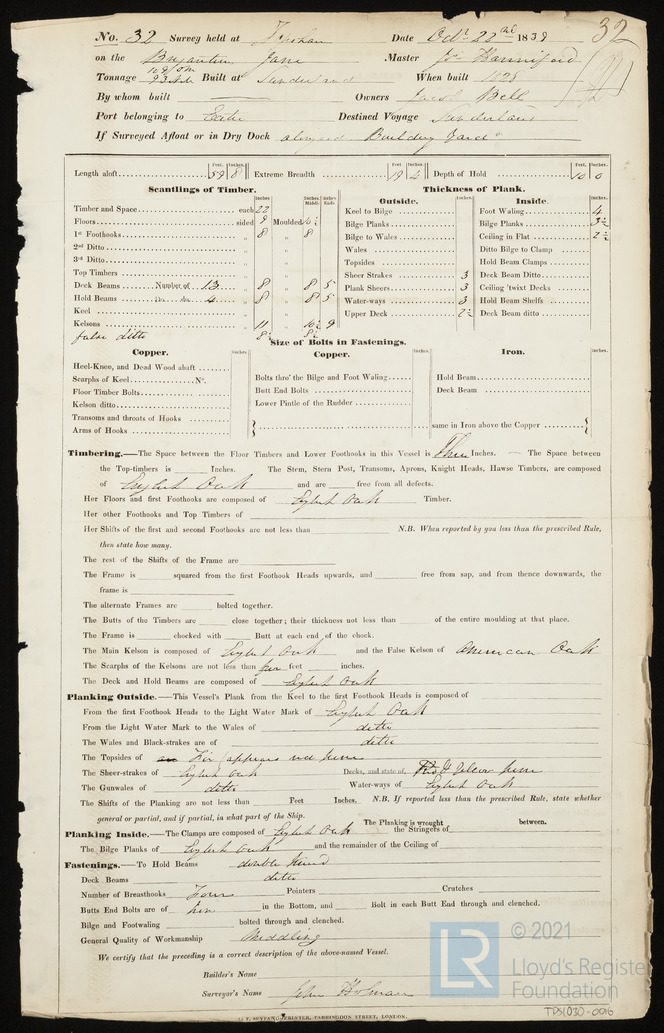 No. 32 Survey held at Date Octr 22nd 1838 32
on the Jane Master
Tonnage Built at Sunderland When built
By whom built Owners Jacob Bell
Port belonging to Destined Voyage Sunderland
If Surveyed Afloat or in Dry Dock Building Yard
Length aloft Feet. 59 Inches. 8 Extreme Breadth Feet 19 Inches. 4 Depth of Hold Feet 10 Inches. 0
Scantlings of Timber.
Timber and Space each 22
Floors sided 9 Moulded
1st Foothooks „ 8 „ 8
2nd Ditto „ „
3rd Ditto „ „
Top Timbers
Deck Beams Number of 13 „ 8 „ 8 5
Hold Beams 4 „ 8 „ 8 5
Keel „ „
Kelsons „ 11 „ 10½ 9
false ditto
Thickness of Plank.
Outside.
Keel to Bilge
Bilge Planks
Bilge to Wales
Wales
Topsides
Sheer Strakes 3
Plank Sheers 3
Water-ways 3
Upper Deck 2½
Inside.
Foot Waling 4
Bilge Planks 3½
Ceiling in Flat 2½
Ditto Bilge to Clamp
Hold Beam Clamps
Deck Beam Ditto
Ceiling 'twixt Decks
Hold Beam Shelfs
Deck Beam ditto
Size of Bolts in Fastenings.
Copper.
Heel-Knee, and Dead Wood abaft
Scarphs of Keel No.
Floor Timber Bolts
Kelson ditto
Transoms and throats of Hooks
Arms of Hooks
Copper.
Bolts thro' the Bilge and Foot Waling
Butt End Bolts
Lower Pintle of the Rudder
Iron.
Hold Beam
Deck Beam
same in Iron above the Copper
Timbering.—The Space between the Floor Timbers and Lower Foothooks in this Vessel is Three Inches. — The Space between
the Top-timbers is Inches. The Stem, Stern Post, Transoms, Aprons, Knight Heads, Hawse Timbers, are composed
of English Oak and are free from all defects.
Her Floors and first Foothooks are composed of English Oak Timber.
Her other Foothooks and Top Timbers of
Her Shifts of the first and second Foothooks are not less than N.B. When reported by you less than the prescribed Rule,
then state how many.
The rest of the Shifts of the Frame are
The Frame is squared from the first Foothook Heads upwards, and free from sap, and from thence downwards, the
frame is
The alternate Frames are bolted together.
The Butts of the Timbers are close together; their thickness not less than of the entire moulding at that place.
The Frame is chocked with Butt at each end of the chock.
The Main Kelson is composed of English Oak and the False Kelson of American Oak
The Scarphs of the Kelsons are not less than feet inches.
The Deck and Hold Beams are composed of English Oak
Planking Outside.—This Vessel's Plank from the Keel to the first Foothook Heads is composed of
From the first Foothook Heads to the Light Water Mark of English Oak
From the Light Water Mark to the Wales of ditto
The Wales and Black-strakes are of ditto
The Topsides of Fir (appears red pine
The Sheer-strakes of English Oak Decks, and state of, Yellow pine
The Gunwales of ditto Water-ways of English Oak
The Shifts of the Planking are not less than Feet Inches. N.B. If reported less than the prescribed Rule, state whether
general or partial, and if partial, in what part of the Ship. The Planking is wrought between.
Planking Inside.—The Clamps are composed of English Oak the Stringers of
The Bilge Planks of English Oak and the remainder of the Ceiling of
Fastenings.—To Hold Beams double kneed
Deck Beams ditto
Number of Breasthooks Four Pointers Crutches
Butts End Bolts are of Iron in the Bottom, and Bolt in each Butt End through and clenched.
Bilge and Footwaling bolted through and clenched.
General Quality of Workmanship Middling
We certify that the preceding is a correct description of the above-named Vessel.
Builder's Name
Surveyor's Name John Holman
PRINTER, FARRINGDON STREET, LONDON.
LR © 2021
Lloyd's Register
Foundation